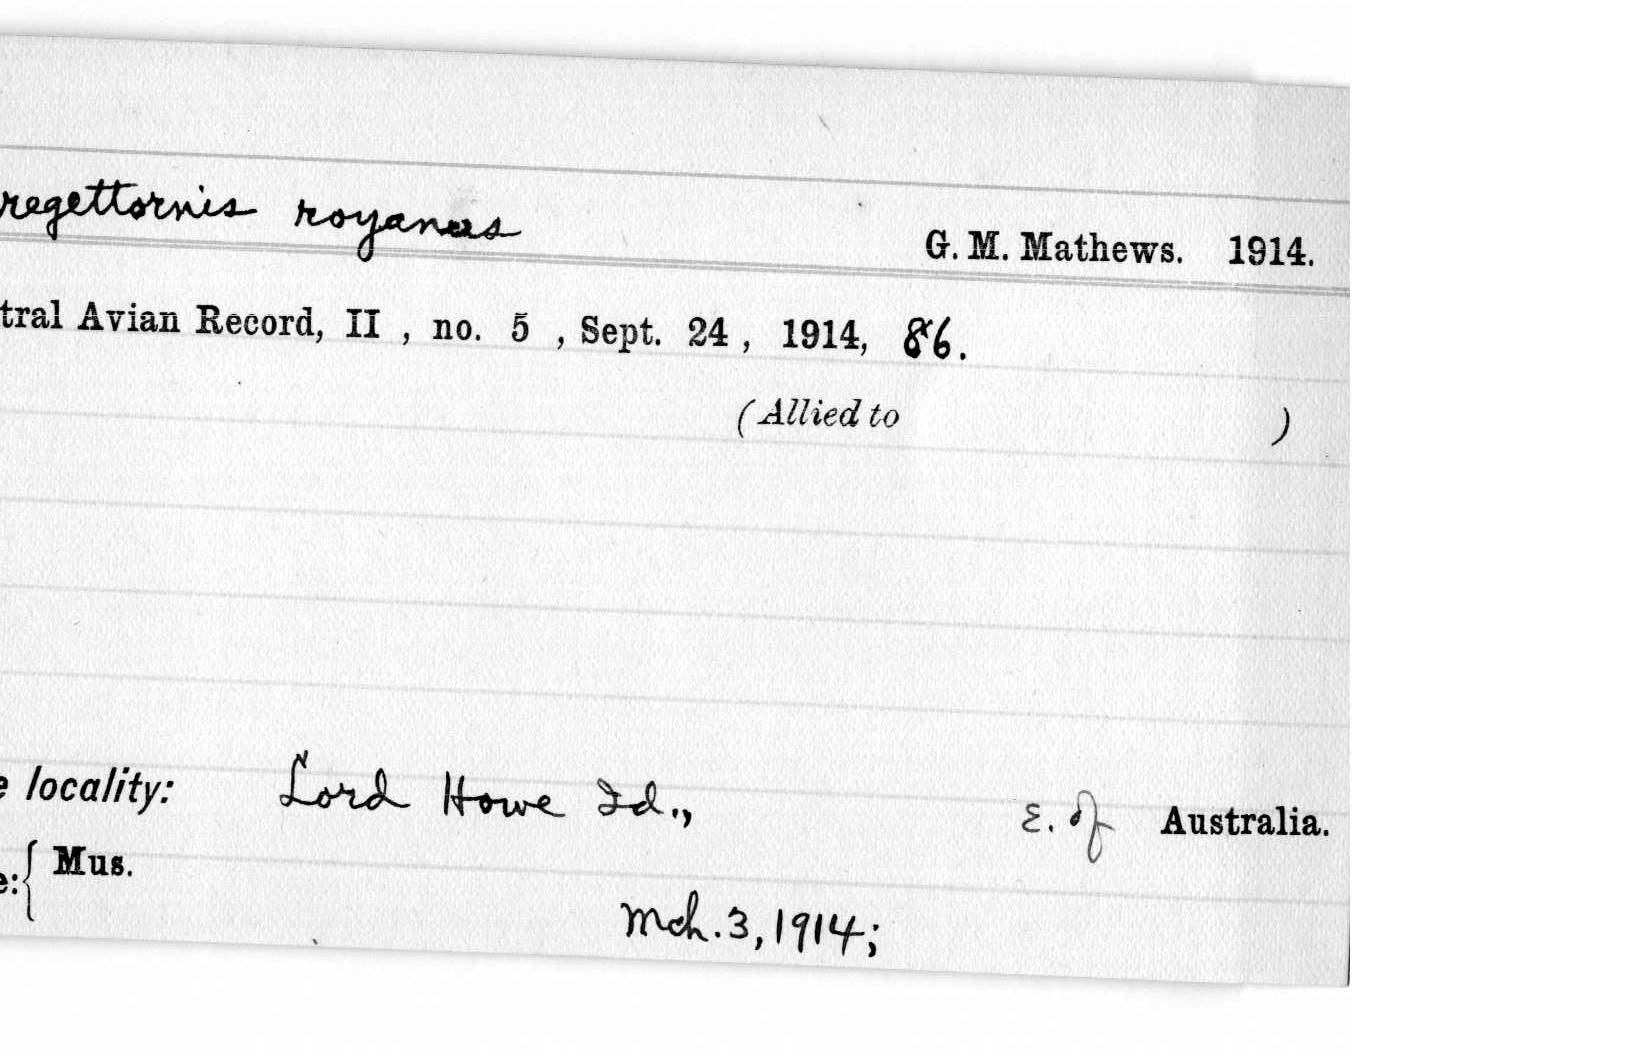 regettornis royanus
G. M. Mathews. 1914.
tral Avian Record, II , no. 5 , Sept. 24 , 1914, 86.
(Allied to )
e locality: Lord Howe Id., E. of Australia.
e:{ Mus.
Mch. 3, 1914;